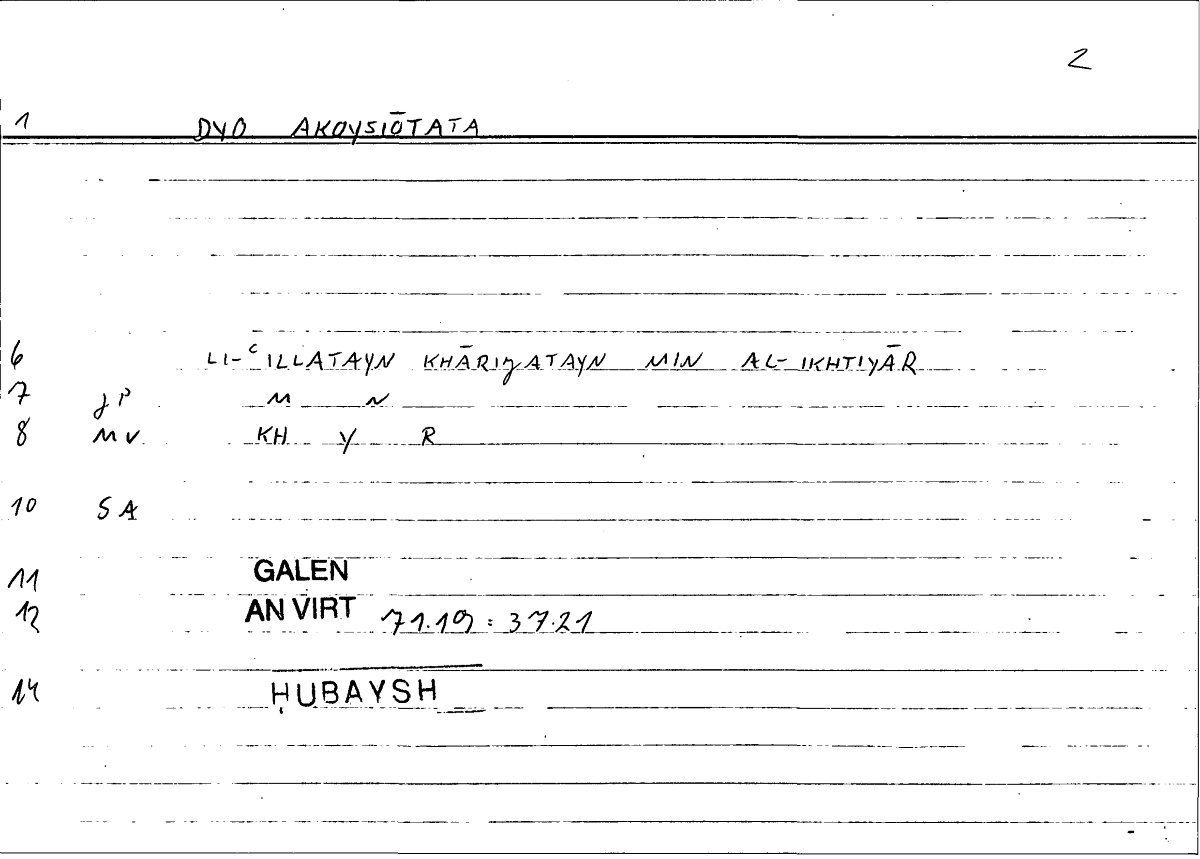 2
1 DYO AKOYSIŌTATA
6 LI-ᶜILLATAYN KHĀRIJATAYN MIN AL-IKHTIYĀR
7 JP M N
8 MV KH Y R
10 SA
11 GALEN
12 AN VIRT 71.19 : 37.21
14 ḤUBAYSH